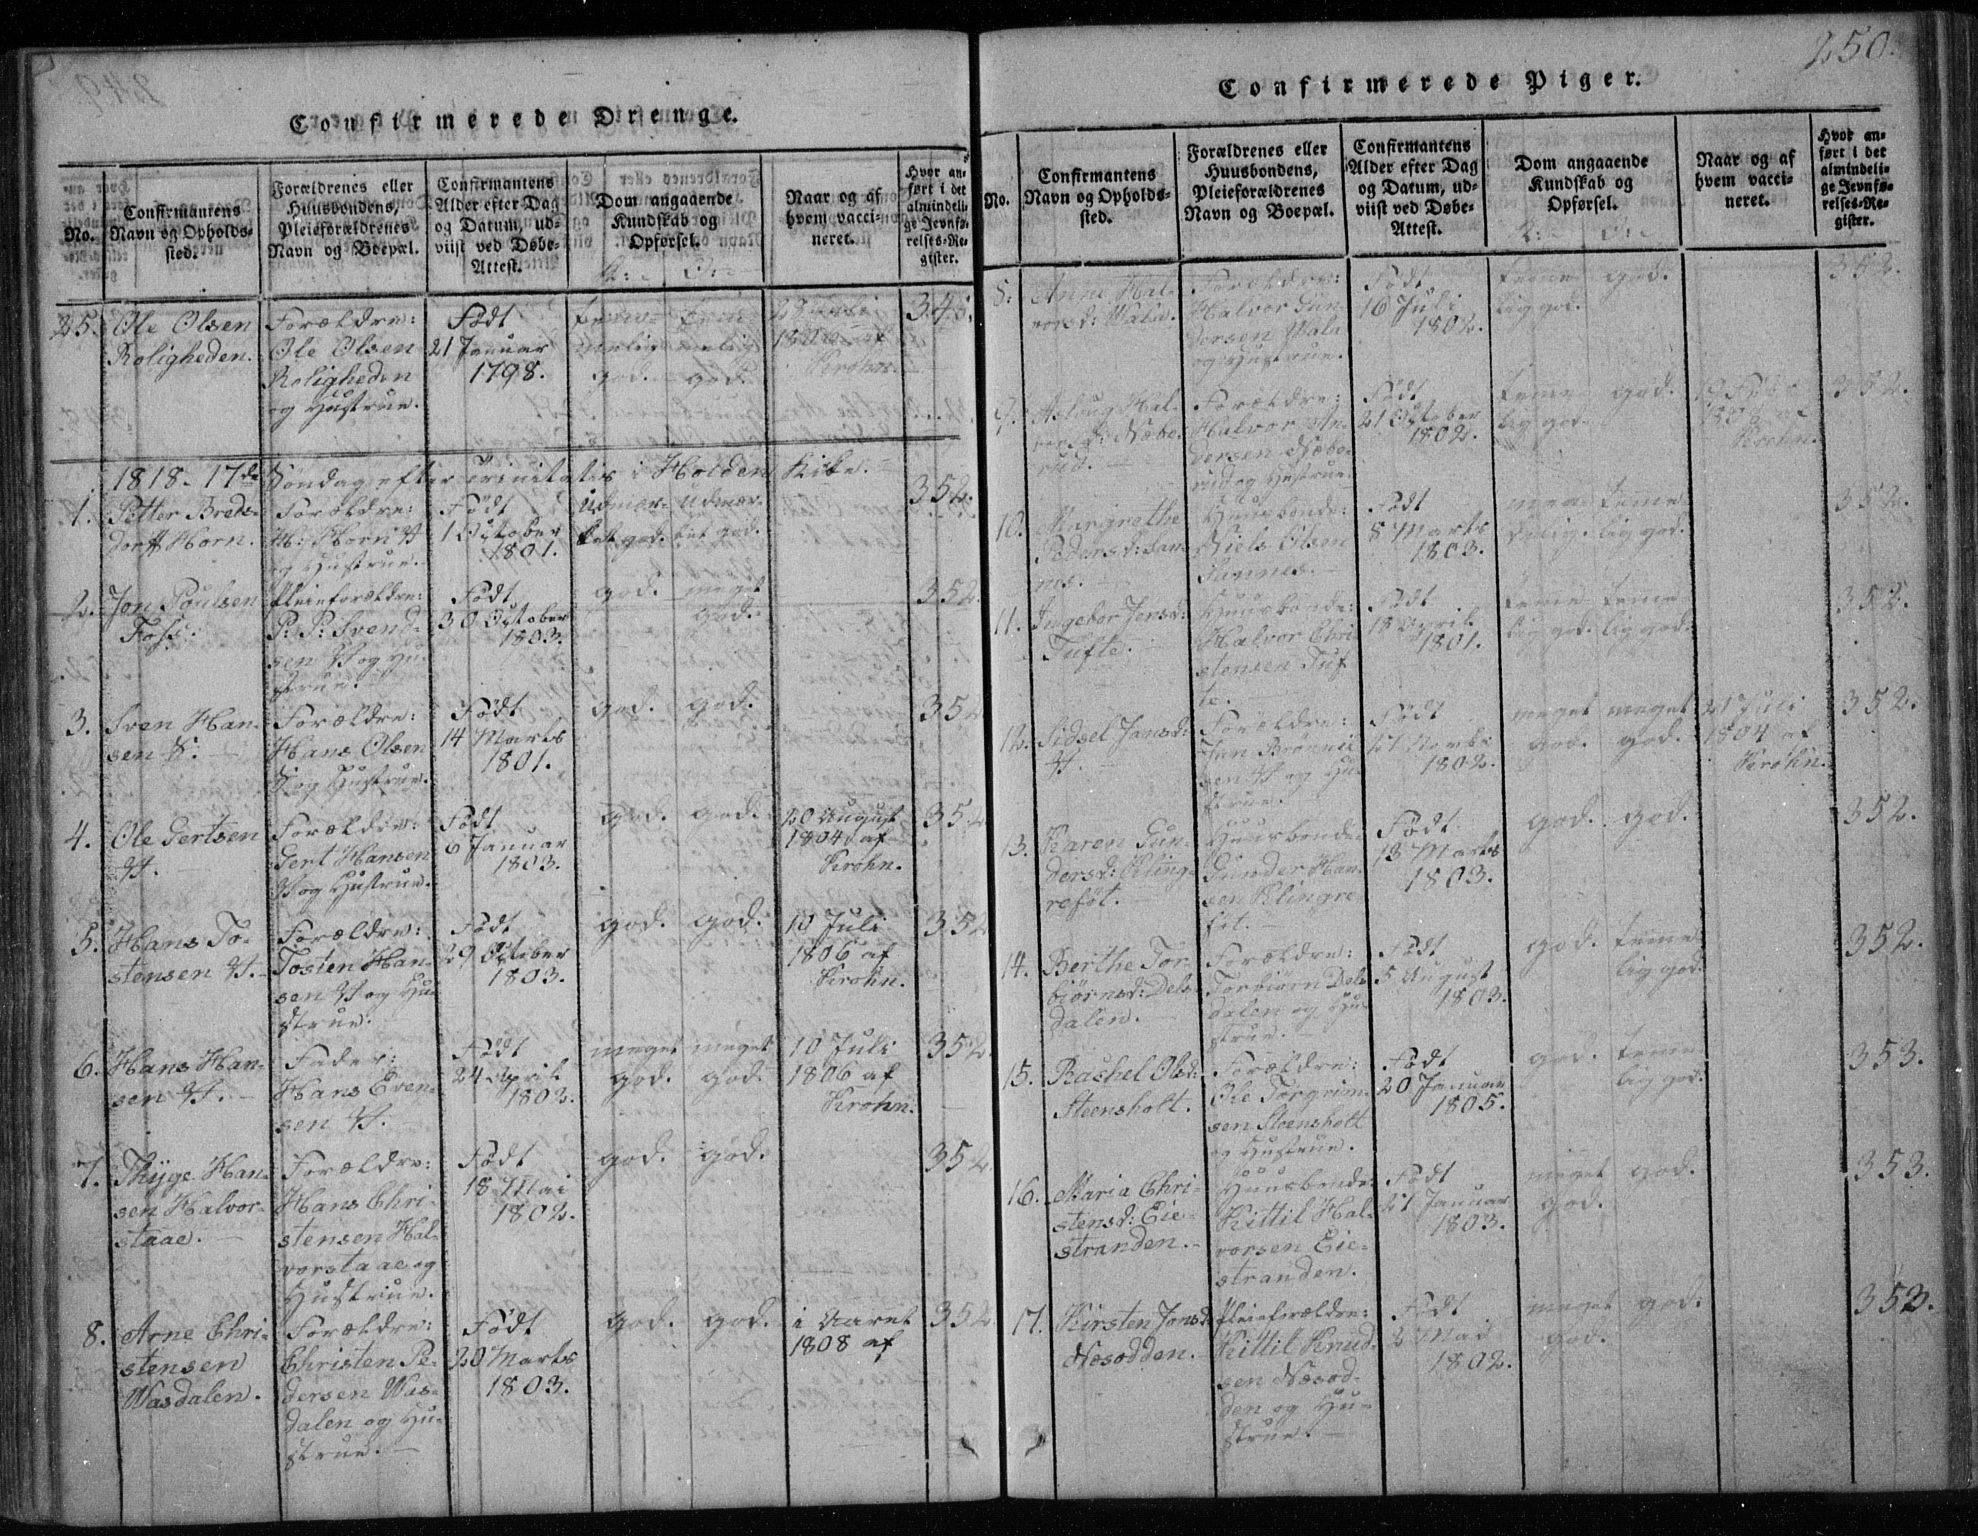 Confirmerede Drenge.
No.
Confirmantens
Navn og Opholds-
sted.
Forældrenes eller
Huusbondens,
Pleieforældrenes
Navn og Boepæl.
Confirmantens
Alder efter Dag
og Datum, ud-
viist ved Døbe-
Attest.
Dom angaaende
Kundskab og
Opførsel.
Naar og af
hvem vacci-
neret.
Hvor an-
ført i det
almindeli-
ge Jevnfø-
relses-Re-
gister.
25. Ole Olsen
Roligheden.
Forældre:
Ole Olsen
Roligheden
og Hustrue.
Født
21 Januar
1798.
god.
god.
Krohn.
345.
1818. 17de Søndag efter Trinitatis i Holden Kirke.
1. Petter Breds-
dorff Horn.
Forældre:
H: Horn
og Hustrue.
Født
1 October
1801.
Udmær-
ket god.
Udmær-
ket god.
352.
2. Jon Poulsen
Foss.
Pleieforældre:
P: P: Svend-
sen og Hu-
strue.
Født
30 October
1803.
god.
meget
god.
352.
3. Sven Han-
sen S.
Forældre:
Hans Olsen
S. og Hustrue.
Født
14 Marts
1801.
god.
god.
352
4. Ole Gertsen
Forældre:
Gert Hansen
og Hustrue.
Født
6 Januar
1803.
god.
god.
20 August
1804 af
Krohn.
352
5. Hans To-
stensen
Forældre:
Tosten Han-
sen og Hu-
strue.
Født
29 October
1803.
god.
god.
10 Juli
1806 af
Krohn.
352
6. Hans Han-
sen
Fader:
Hans Even-
sen
Født
24 April
1802.
meget
god.
meget
god.
10 Juli
1806 af
Krohn.
352
7. Thyge Han-
sen Halvor-
staae.
Forældre:
Hans Chri-
stensen Hal-
vorstaae og
Hustrue.
Født
18 Mai
1802.
god.
god.
352
8. Arne Chri-
stensen
Wasdalen.
Forældre:
Christen Pe-
dersen Was-
dalen og Hu-
strue.
Født
20 Marts
1803.
god.
god.
i Aaret
1808 af
352
250.
Confirmerede Piger.
No.
Confirmantens
Navn og Opholds-
sted.
Forældrenes eller
Huusbondens,
Pleieforældrenes
Navn og Boepæl.
Confirmantens
Alder efter Dag
og Datum, ud-
viist ved Døbe-
Attest.
Dom angaaende
Kundskab og
Opførsel.
Naar og af
hvem vacci-
neret.
Hvor an-
ført i det
almindeli-
ge Jevnfø-
relses-Re-
gister.
8. Anne Hal-
vorsd: Wala.
Forældre:
Halvor Gun-
dersen Wala
og Hustrue.
Født
16 Juli
1802.
teme-
lig god.
god.
352.
9. Aslaug Hal-
vorsd: Næbe-
rud.
Forældre:
Halvor An-
dersen Næbe-
rud og Hustrue.
Født
21 October
1802.
teme-
lig god.
god.
Krohn.
352.
10. Margrethe
Pedersd: San-
nes.
Huusbonde:
Niels Olsen
Sannes.
Født
8 Marts
1803.
teme-
lig god.
352.
11. Ingebor Jensd:
Tufte.
Huusbonde:
Halvor Chri-
stensen Tuf-
te.
Født
18 April
1801.
teme-
lig god.
teme-
lig god.
352.
12. Sidsel Jansd:
Forældre:
Jan
sen og Hu-
strue.
Født
27 Marts
1802.
meget
god.
meget
god.
21 Juli
1804 af
Krohn.
352.
13. Karen Gun-
dersd: Kling-
refot.
Huusbonde:
Gunder Han-
sen Klingre-
fot.
Født
13 Marts
1803.
god.
god.
352.
14. Berthe Tor-
biørnsd: Dels-
dalen.
Forældre:
Torbiørn Dels-
dalen og Hu-
strue.
Født
5 August
1803.
god.
teme-
lig god.
352.
15. Rachel Olsd:
Steensholt.
Forældre:
Ole Torgrim-
sen Steensholt
og Hustrue.
Født
20 Januar
1805.
god.
teme-
lig god.
353.
16. Maria Chri-
stensd: Eie-
stranden.
Huusbonde:
Kittil Hal-
vorsen Eie-
stranden.
Født
27 Januar
1803.
meget
god.
god.
353.
17. Kirsten Jonsd:
Næsodden.
Pleieforældre:
Kittil Knud-
sen Næsod-
den og Hu-
strue.
Født
2 Mai
1802.
meget
god.
god.
353.